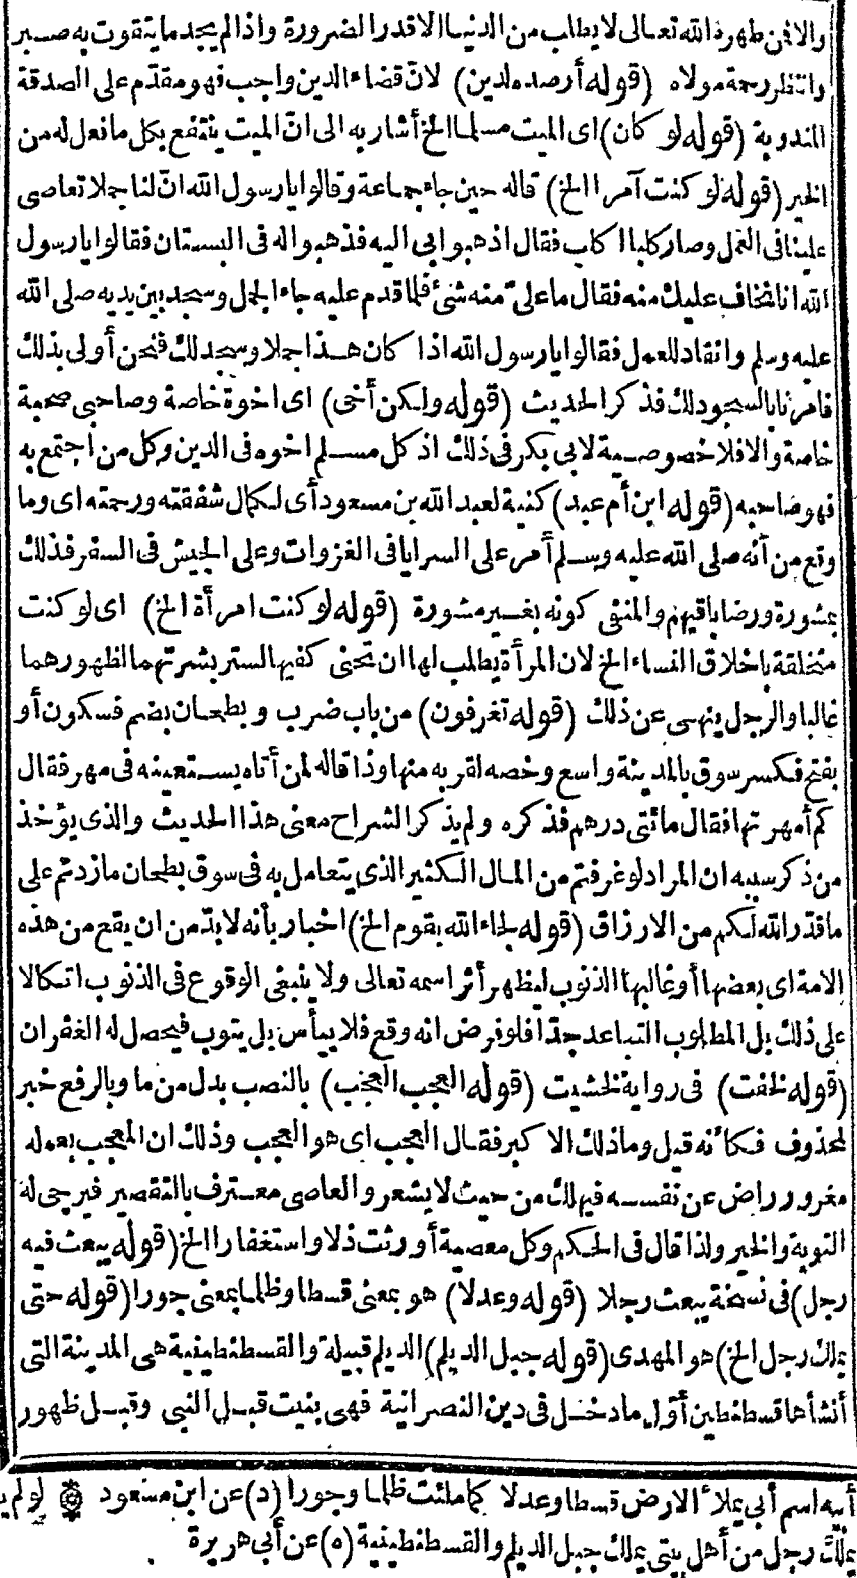 والا فمن طهره الله تعالى لا يطلب من الدنيا الا قدر الضرورة واذا لم يجد ما يتقوت به صبر
وانتظر رحمة مولاه (قوله أرصده لدين) لان قضاء الدين واجب فهو مقدم على الصدقة
المندوبة (قوله لو كان) اى الميت مسلما الخ أشار به الى ان الميت ينتفع بكل ما فعل له من
الخير (قوله لو كنت آمرا الخ) قاله حين جاء جماعة وقالوا يا رسول الله ان لنا جملا تعاصى
علينا فى العمل وصار كلبا اكاب فقال اذهبوا بى اليه فذهبوا له فى البستان فقالوا يا رسول
الله انا نخاف عليك منه فقال ما على منه شئ فلما قدم عليه جاء الجمل وسجد بين يديه صلى الله
عليه وسلم وانقاد للعمل فقالوا يا رسول الله اذا كان هذا جملا وسجد لك فنحن أولى بذلك
فامرنا بالسجود لك فذكر الحديث (قوله ولكن أخى) اى اخوة خاصة وصاحبى صحبة
خاصة والا فلا خصوصية لابى بكر فى ذلك اذ كل مسلم اخوه فى الدين وكل من اجتمع به
فهو صاحبه (قوله ابن أم عبد) كنية لعبد الله بن مسعود أى لكمال شفقته ورحمته اى وما
وقع من أنه صلى الله عليه وسلم أمر على السرايا فى الغزوات وعلى الجيش فى السفر فذلك
بمشورة ورضا باقيهم والمنفى كونه بغير مشورة (قوله لو كنت امرأة الخ) اى لو كنت
متخلقة باخلاق النساء الخ لان المرأة يطلب لها ان تحنى كفيها لستر بشرتهما لظهورهما
غالبا والرجل ينهى عن ذلك (قوله تغرفون) من باب ضرب و بطحان بضم فسكون أو
بفتح فكسر سوق بالمدينة واسع وخصه لقربه منها وذا قاله لمن أتاه يستعينه فى مهر فقال
كم أمهرتها فقال مائتى درهم فذكره ولم يذكر الشراح معنى هذا الحديث والذى يؤخذ
من ذكر سببه ان المراد لو غرفتم من المال الكثير الذى يتعامل به فى سوق بطحان ما زدتم على
ما قدر الله لكم من الارزاق (قوله لجاء الله بقوم الخ) اخبار بأنه لا بد من ان يقع من هذه
الامة اى بعضها أو غالبها الذنوب ليظهر أثر اسمه تعالى ولا ينبغى الوقوع فى الذنوب اتكالا
على ذلك بل المطلوب التباعد جدا فلو فرض انه وقع فلا ييأس بل يتوب فيحصل له الغفران
(قوله لخفت) فى رواية لخشيت (قوله العجب العجب) بالنصب بدل من ما وبالرفع خبر
لمحذوف فكأنه قيل وما ذلك الاكبر فقال العجب اى هو العجب وذلك ان المعجب بعمله
مغرور راض عن نفسه فيهلك من حيث لا يشعر والعاصى معترف بالتقصير فيرجى له
التوبة والخير ولذا قال فى الحكم وكل معصية أورثت ذلا واستغفارا الخ (قوله يبعث فيه
رجل) فى نسخة يبعث رجلا (قوله وعدلا) هو بمعنى قسطا وظلما بمعنى جورا (قوله حتى
يملك رجل الخ) هو المهدى (قوله جبل الديلم) الديلم قبيلة والقسطنطينية هى المدينة التى
أنشأها قسطنطين أول ما دخل فى دين النصرانية فهى بنيت قبل النبى وقبل ظهور
أبيه اسم أبى يملأ الارض قسطا وعدلا كما ملئت ظلما وجورا (د) عن ابن مسعود ۞ لو لم
يملك رجل من أهل بيتى يملك جبل الديلم والقسطنطينية (ه) عن أبى هريرة